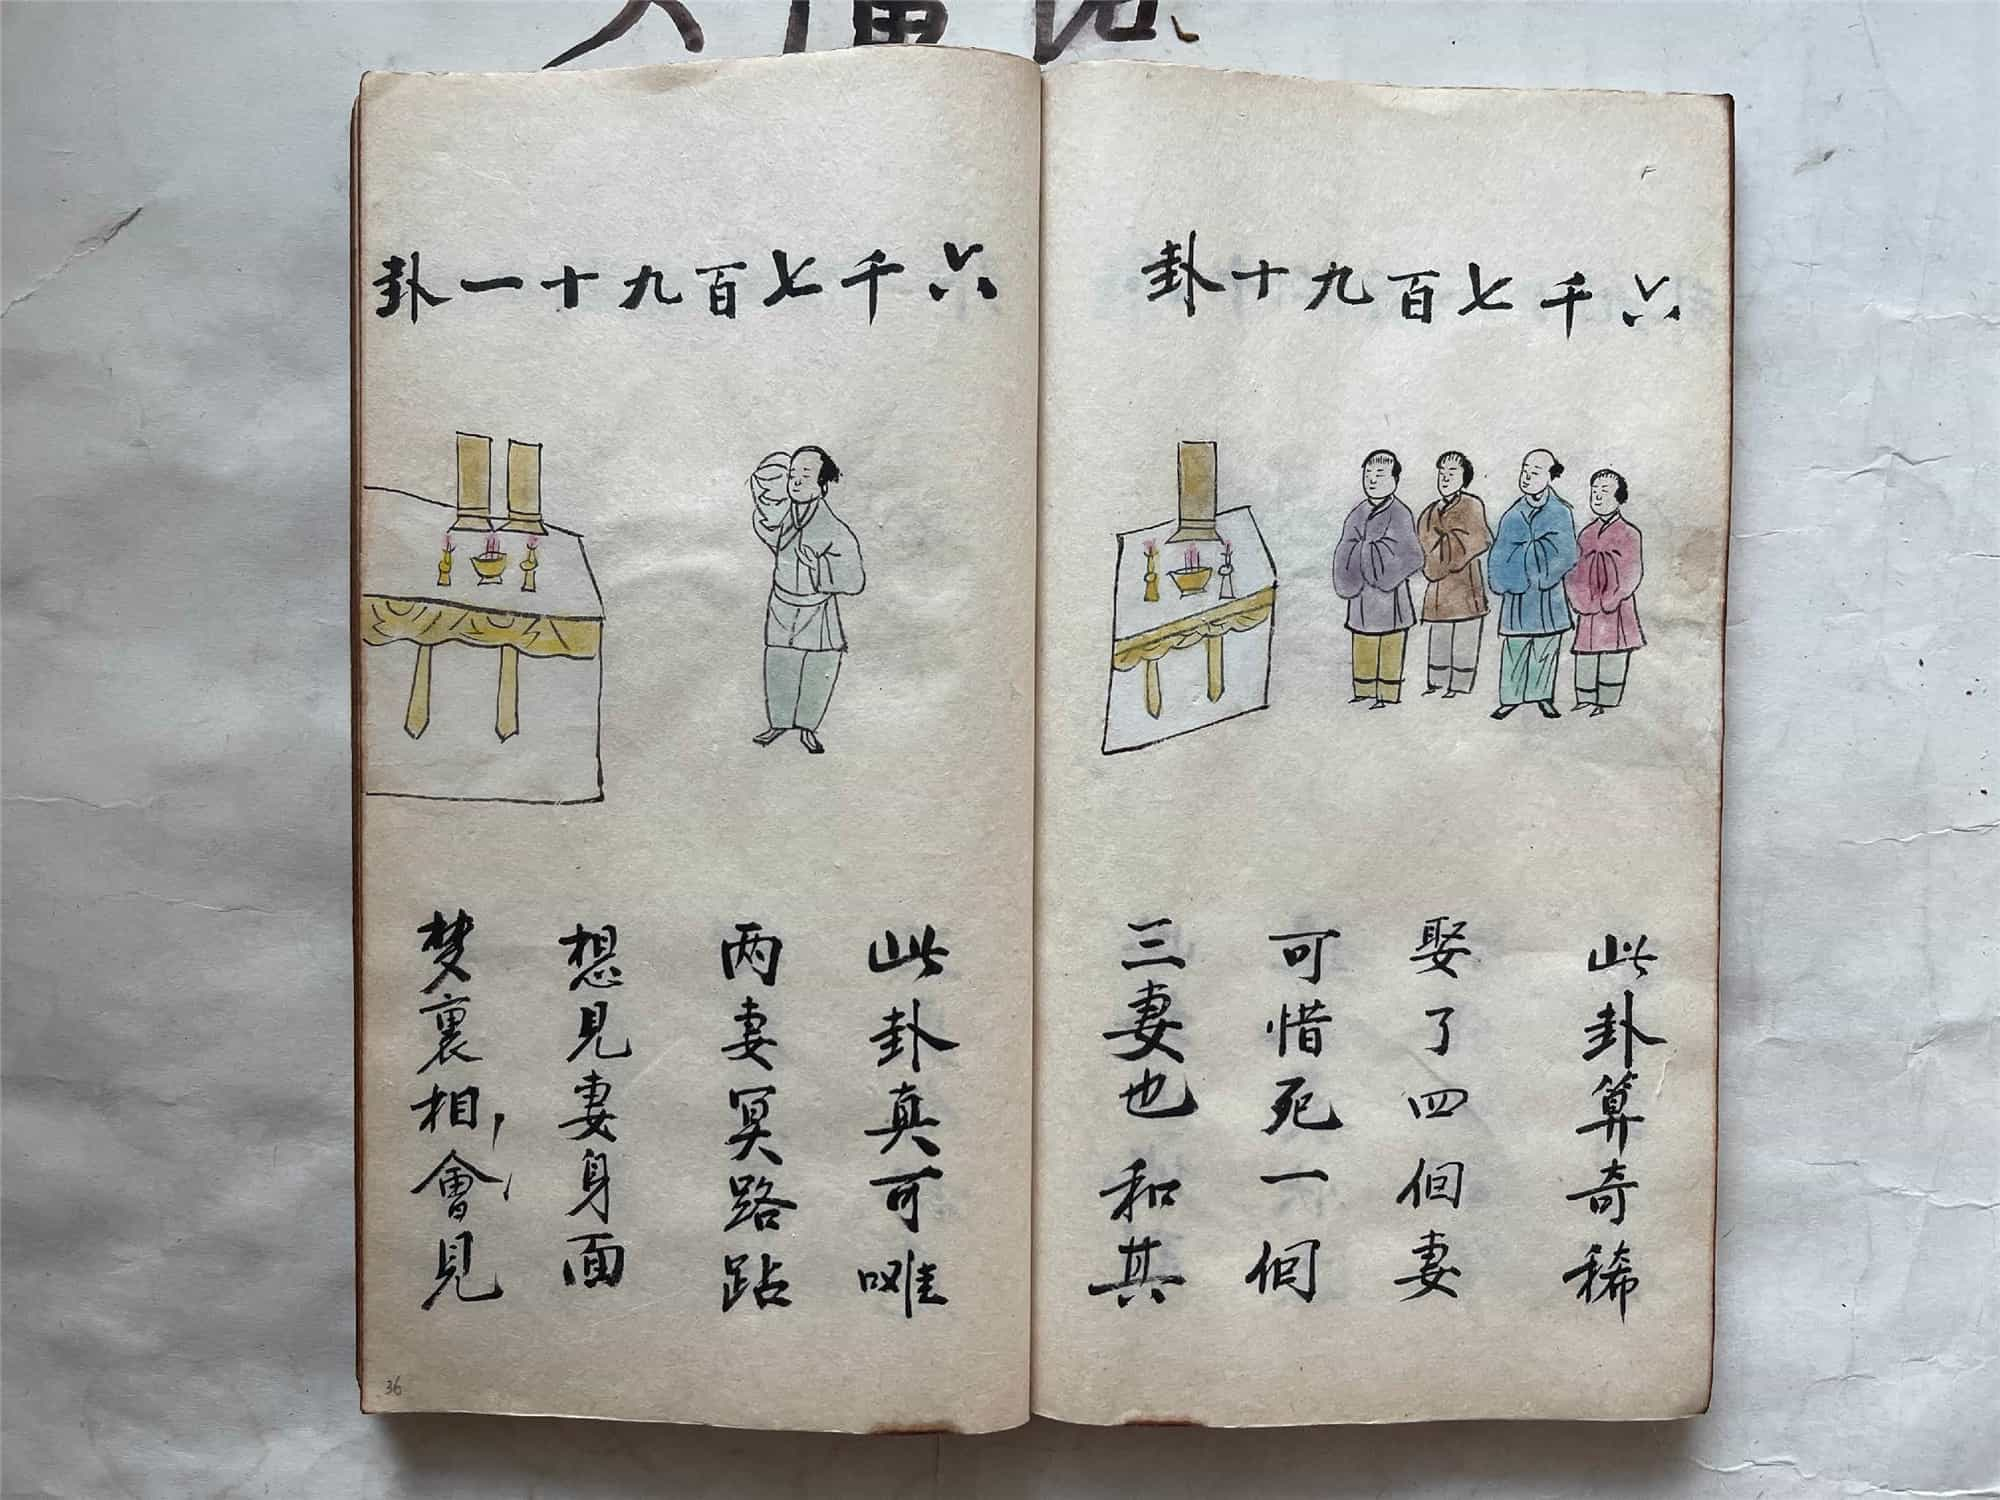 六千七百九十卦
此卦算奇稀
娶了四佪妻
可惜死一個
三妻也和其
六千七百九十一卦
此卦真可唯
两妻冥路跕
想見妻身面
梦裏相會見
36